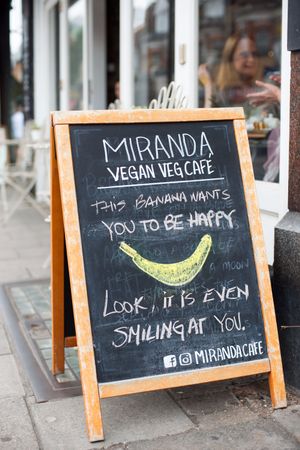 MIRANDA
VEGAN VEG CAFE
THIS BANANA WANTS
YOU TO BE HAPPY
LOOK, IT IS EVEN
SMILING AT YOU.
MIRANDACAFE